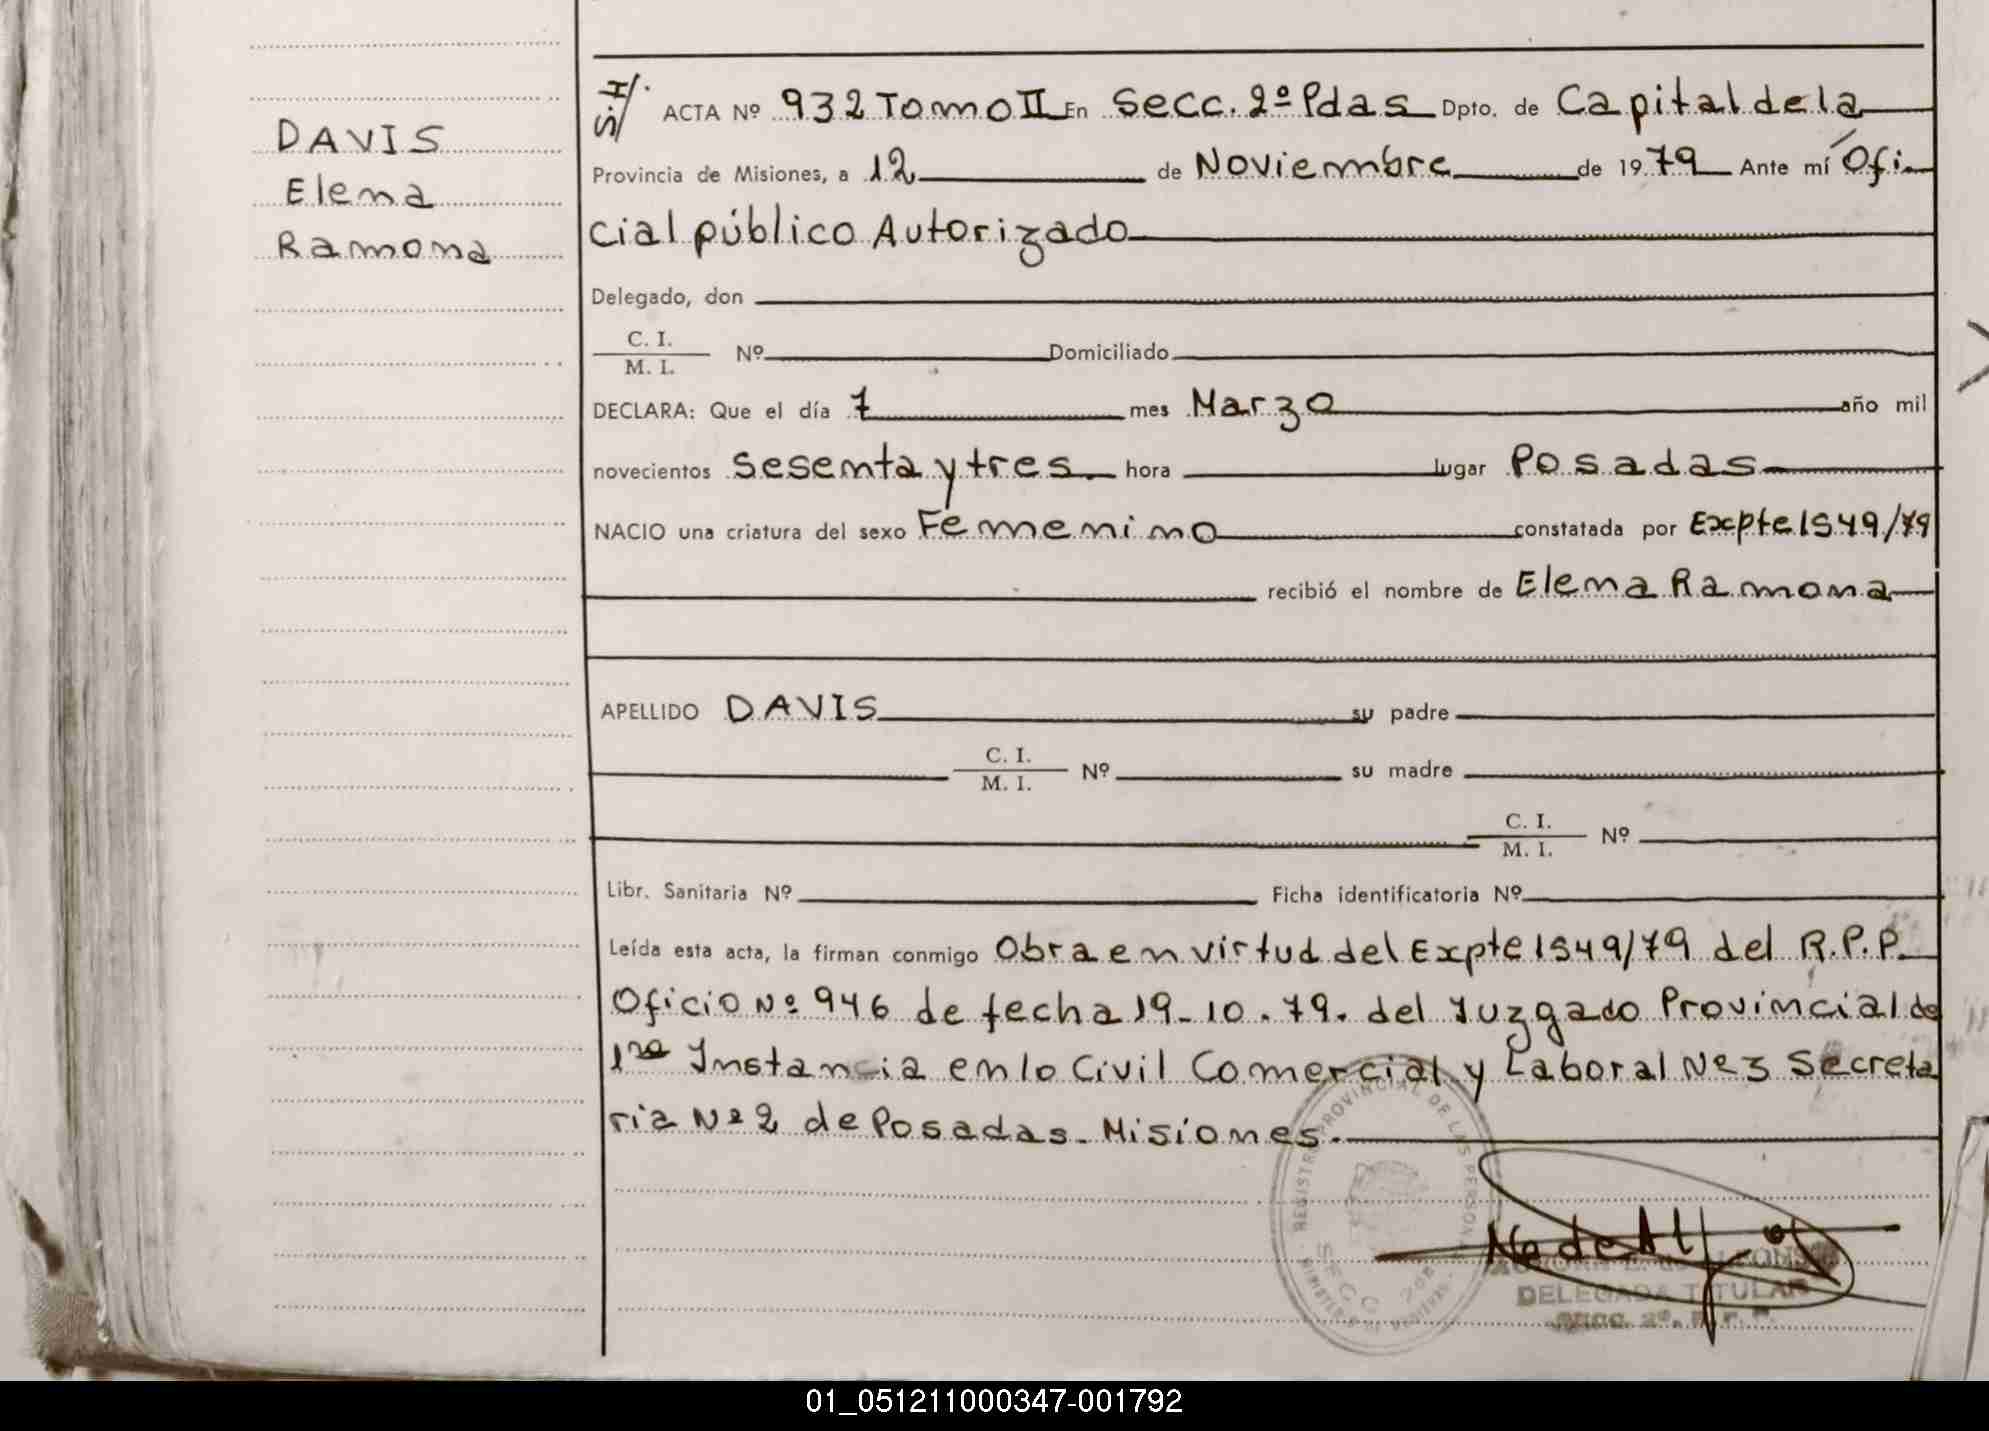 DAVIS
Elena
Ramona
S.H/.
ACTA Nº 932 Tomo II En Secc. 2º Pdas Dpto. de Capital de la
Provincia de Misiones, a 12 de Noviembre de 1979 Ante mí Ofi
cial público Autorizado
Delegado, don
C. I.
M. I. Nº Domiciliado
DECLARA: Que el día 7 mes Marzo año mil
novecientos sesenta y tres hora lugar Posadas
NACIO una criatura del sexo Femenino constatada por Expte 1549/79
recibió el nombre de Elena Ramona
APELLIDO DAVIS su padre
C. I.
M. I. Nº su madre
C. I.
M. I. Nº
Libr. Sanitaria Nº Ficha identificatoria Nº
Leída esta acta, la firman conmigo Obra en virtud del Expte 1549/79 del R.P.P.
Oficio Nº 946 de fecha 19-10.79. del Juzgado Provincial de
1ra Instancia en lo Civil Comercial y Laboral Nº 3 Secreta
ria Nº 2 de Posadas - Misiones.
REGISTRO PROVINCIAL DE LAS PERSONAS
SECC 2
DELEGADA TITULAR
SECC. 2º. R. P. P.
01_051211000347-001792